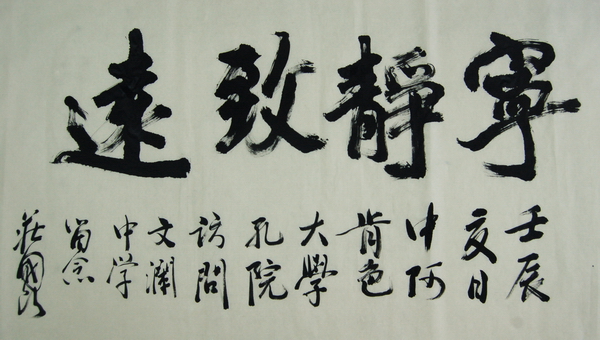 寧靜致遠
壬辰
夏日
中阿
肯色
大學
孔院
访問
文瀾
中学
留念
莊國